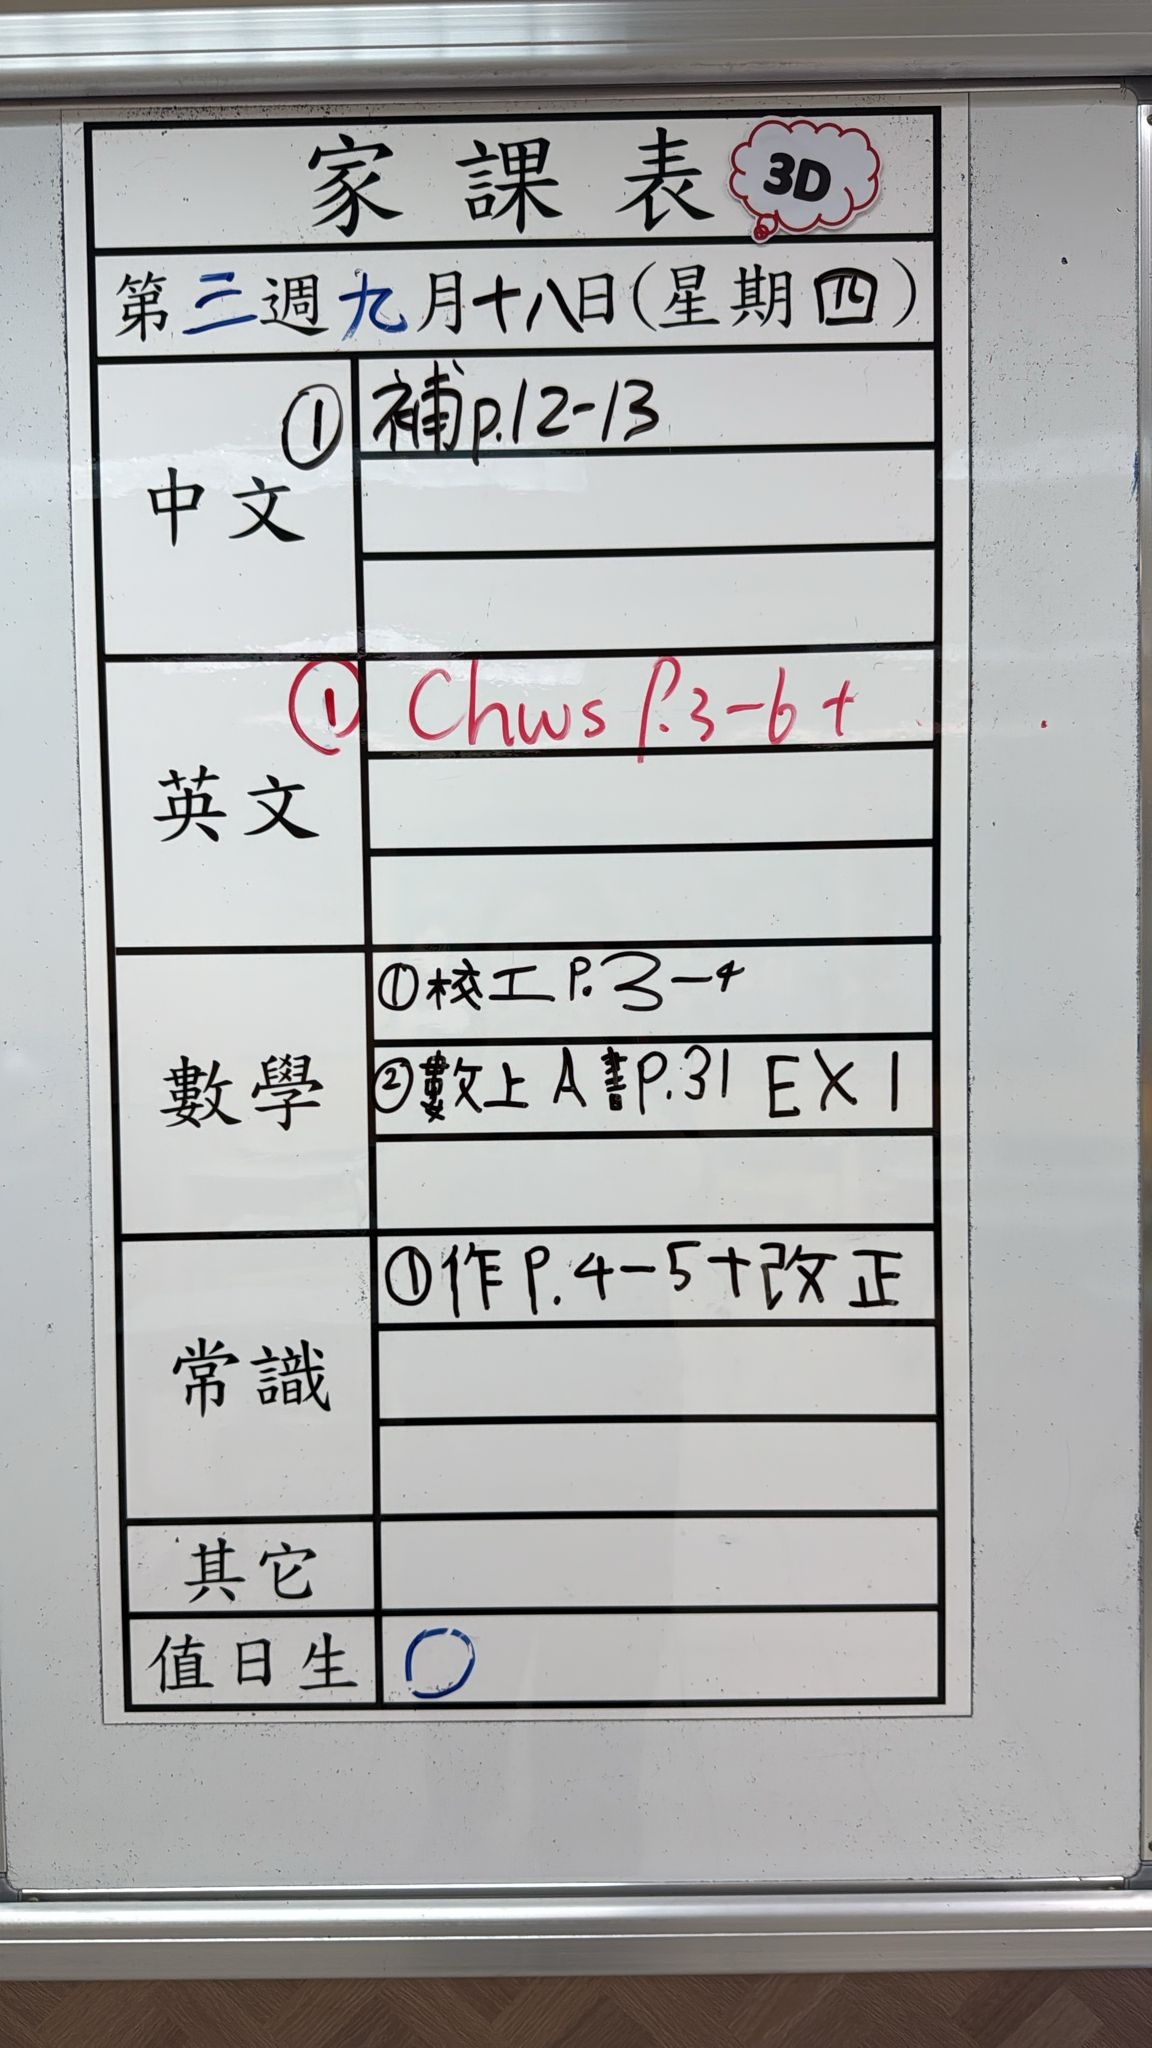 家課表 3D
第三週九月十八日(星期四)
中文
① 補p.12-13
英文
① Chws P.3-6+
數學
①校工P.3-4
②數上A書P.31 EX1
常識
①作P.4-5+改正
其它
值日生